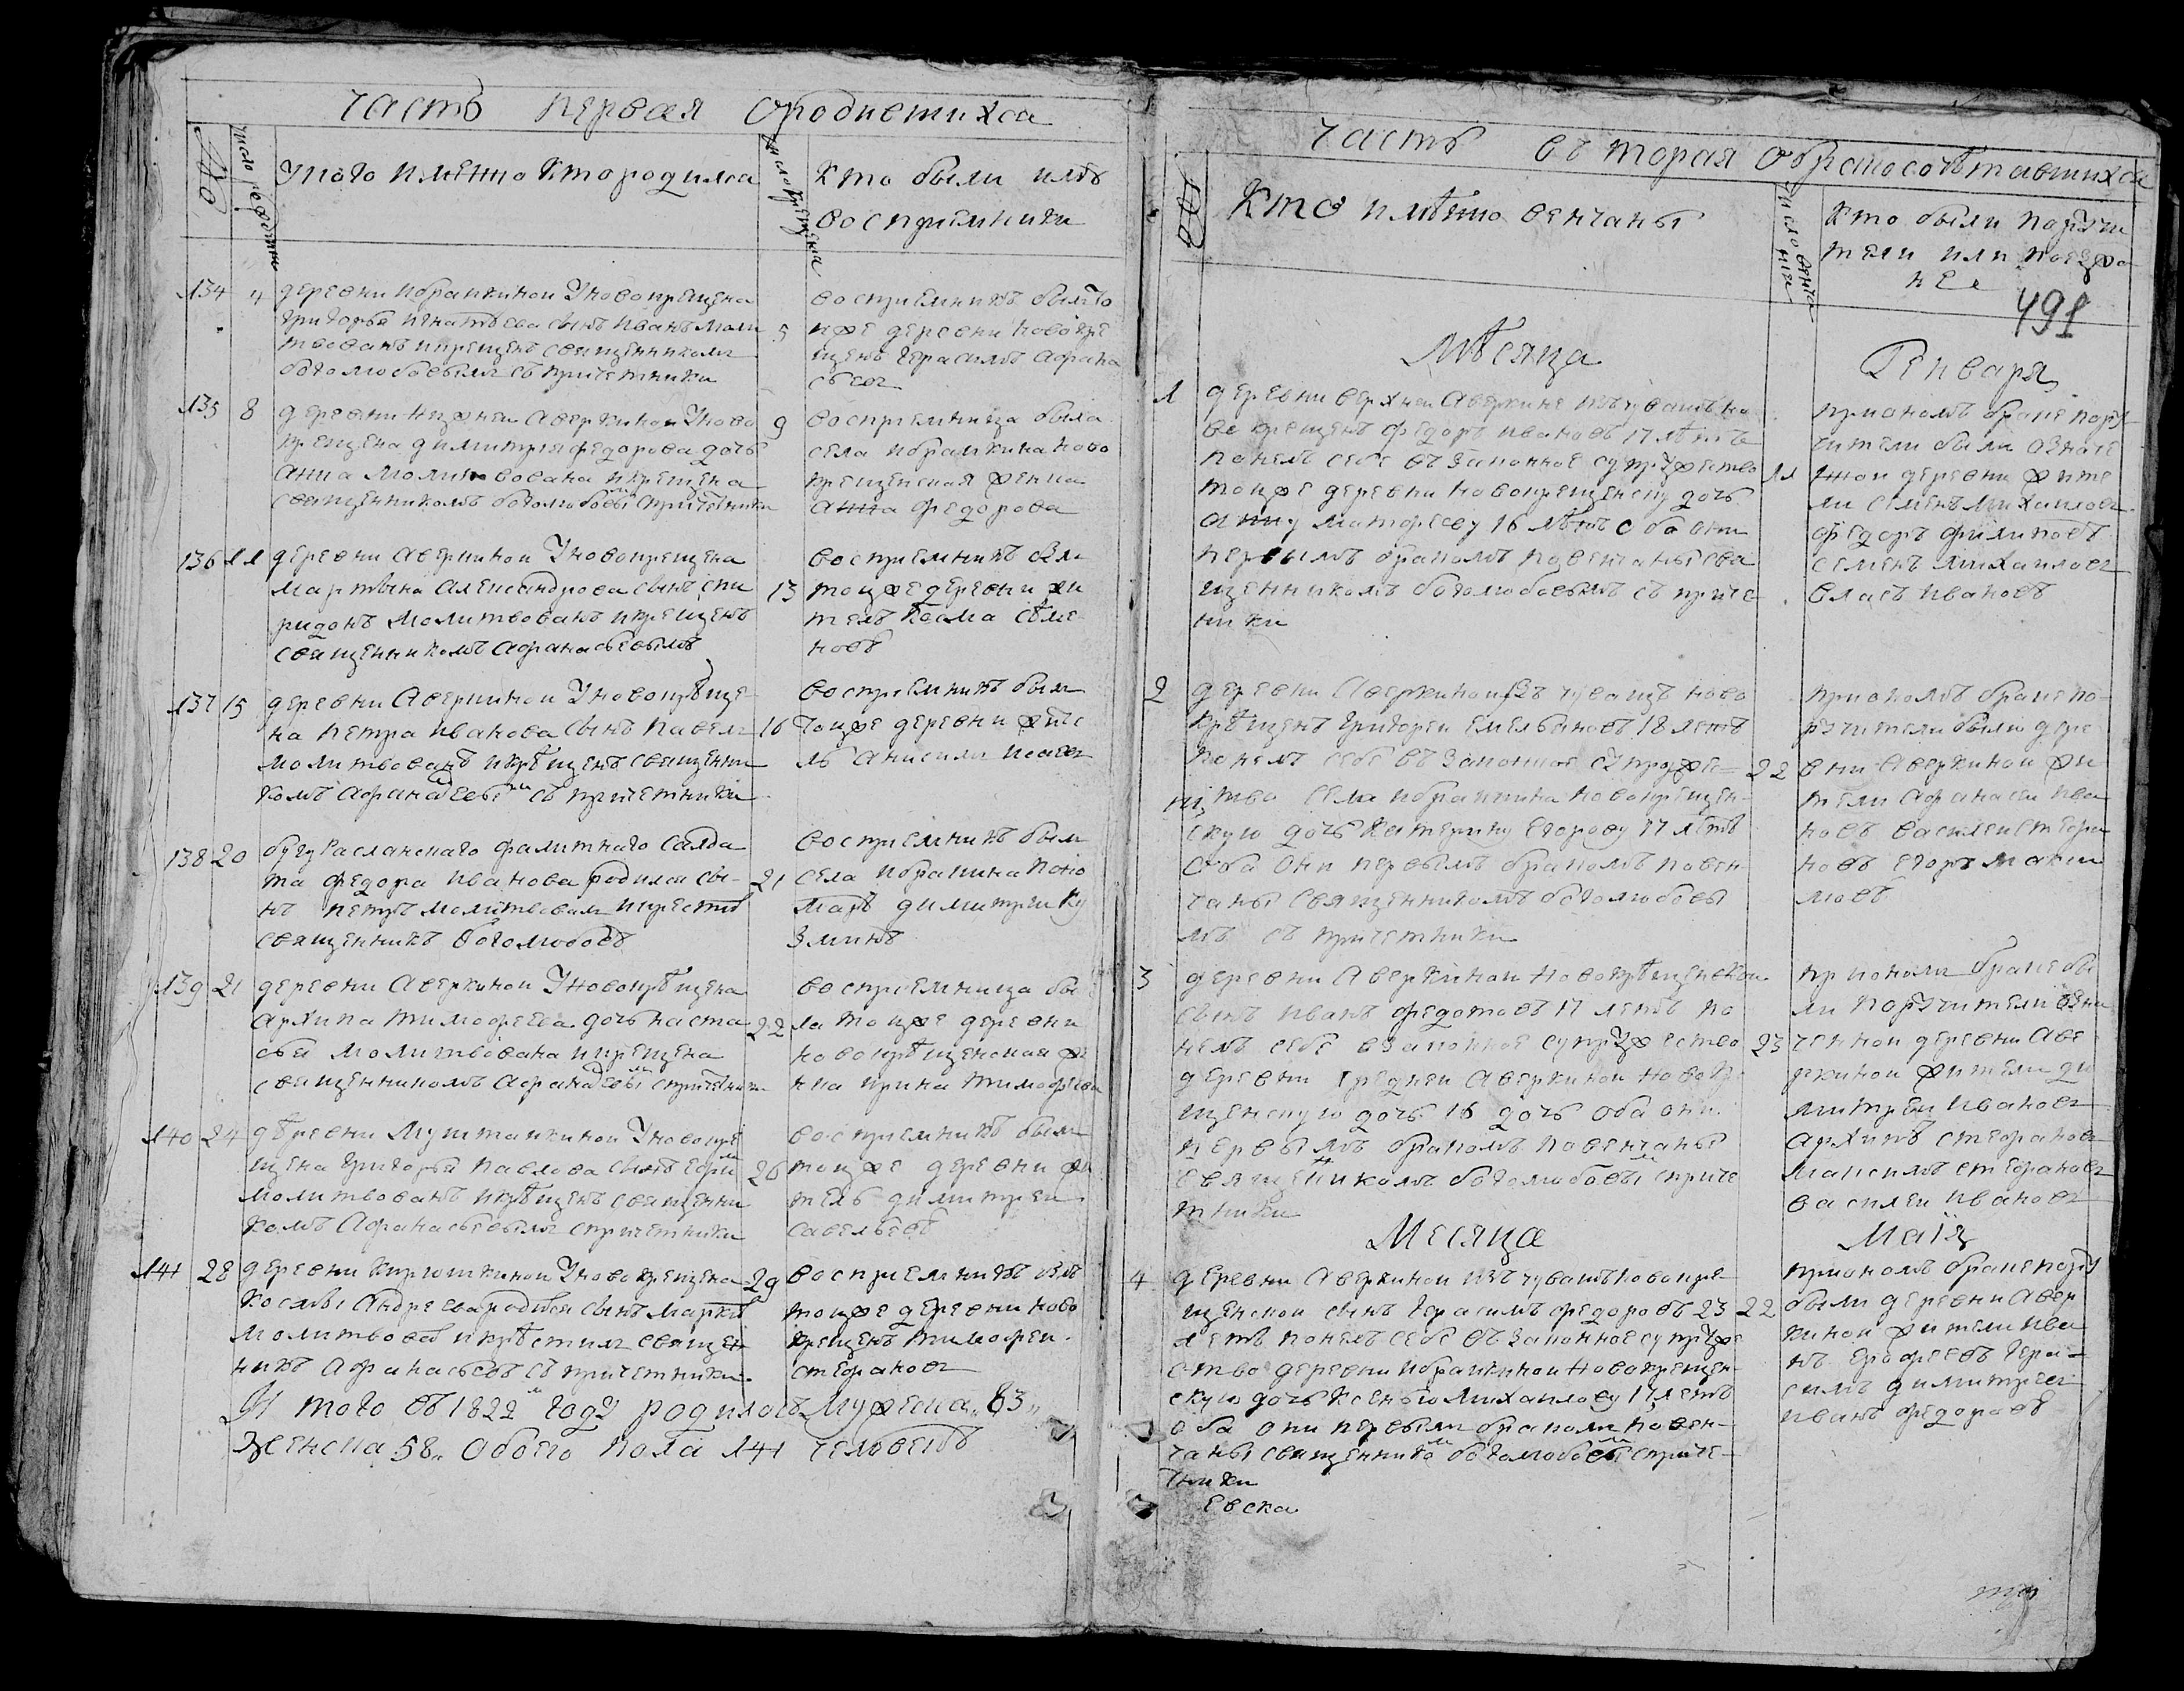 часть первая ородившихся
№
число рождения
У кого именно кто родился
число крещения
Кто были или
восприемники
134 4 деревни Ибрайкиной У новокрещена
Григорья Игнатьева сынъ Иванъ моли
твованъ и крещенъ священникомъ
боголюбовымъ съ причетники
5
восприемникъ былъ то
иже деревни новокре
щенъ Герасимъ Афана
сьев
135 8 деревни Нижней Аверкиной У ново
крещена Димитрия Федорова дочь
Анна молитвована и крещена
священникомъ боголюбовым спричетники
9
восприемница была
села Ибрайкина ново
крещенская женка
Анна Федорова
136 11 деревни Аверкиной У новокрещена
Мартына Александрова сынъ спи
ридонъ молитвованъ и крещенъ
священникомъ Афанасьевымъ
13
восприемникъ былъ
тоиже деревни жи
тель Косма Семе
новъ
137 15 деревни Аверкиной У новокрѣще
на Петра Иванова сынъ Павел
молитвованъ и крѣщенъ священни
комъ Афанасьевым съ причетники
16
восприемникъ былъ
тоиже деревни жите
ль Анисим Исаев
138 20 бугурасланского салда
та Федора Иванова родился сы
нъ Петръ молитвовал и крестил
священникъ боголюбовъ
21
восприемникъ былъ
села Ибрайкина поно
марь Димитрий Ку
зминъ
139 21 деревни Аверкиной У новокрѣщена
Архипа Тимофеева дочь наста
сья молитвована и крещена
священникомъ Афанасьевым спричетники
22
восприемница бы
ла тоиже деревни
новокрѣщенская же
нка Ирина Тимофеева
140 24 дѣревни Муштайкиной У новокре
щена Григорья Павлова сынъ Ефрем
молитвованъ и крѣщенъ священни
комъ Афанасьевым спричетники
26
восприемникъ былъ
тоиже деревни жи
тель Димитрей
Савельевъ
141 28 деревни Кирюшкиной У новокрещена
Космы Андреева родился сынъ Маркъ
молитвовалъ и крѣстилъ священ
никъ Афанасьевъ съ причетники
29
восприемникъ былъ
тоиже деревни ново
крещенъ Тимофей
Стефанов
И того въ 1822м году родилось Мужеска 83
женска 58 Обоего пола 141 человекъ
часть вторая о бракосочѣтавшихся
№
Кто имѣнно венчаны
число венчания
Кто были поручи
тели или поезжа
нее
491
Мѣсяца Генваря
1 деревни верхней Аверкине изъ чувашъ но
вокрещенъ Федоръ Ивановъ 17 лѣтъ
понелъ себе въ законное супружество
тоиже деревни новокрещенску дочь
Анну Матфееву 16 лѣтъ оба они
первымъ бракомъ повенчаны свя
щенникомъ боголюбовымъ съ приче
ники
11
при ономъ браке пору
чители были означе
нной деревни жите
ли Семенъ Михайлов
Федоръ Филиповъ
Семенъ Михайлов
Власъ Ивановъ
2 деревни Аверкиной изъ чувашъ ново
крѣщенъ Григорей Емельяновъ 18 летъ
понелъ себе въ законное супруже
нство села Ибрайкина новокрещен
скую дочь Катерину Егорову 17 летъ
оба они первымъ бракомъ повен
чаны священникомъ боголюбовы
мъ съ причетники
22
при ономъ браке по
ручители были дере
вни Аверкиной жи
тели Афанасей Ива
новъ Василей Стефа
новъ Егоръ Макси
мовъ
3 деревни Аверкиной новокрѣщенской
сынъ Иванъ Федотовъ 17 летъ по
нелъ себе в законное супружество
деревни средней Аверкиной новокре
щенскую дочь 16 дочь оба они
первымъ бракомъ повенчаны
священикомъ боголюбовым сприче
тники
23
при ономъ браке бы
ли поручители озна
ченной деревни Аве
ркиной жители Ди
митрей Иванов
Архипъ Стефанов
Максимъ Стефанов
Василей Иванов
Месяца Маія
4 деревни Аверкиной изъ чувашъ новокре
щенской сынъ Герасимъ Федоровъ 23
летъ понелъ себе въ законное супруже
ство деревни Ибрайкиной новокрещен
скую дочь Ксенью Михайлову 17 летъ
оба они первым браком повен
чаны священником боголюбовым сприче
тники
22
при ономъ браке пору
были деревни Авер
киной жители Ива
нъ Ерофеевъ Гера
симъ Димитреев
Иванъ Федоровъ
евска